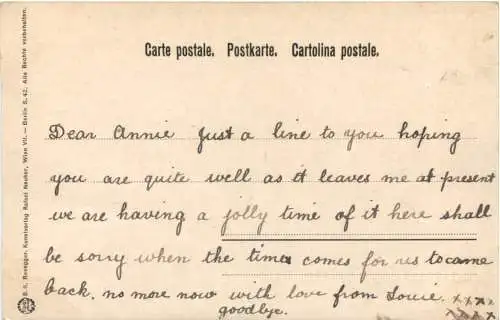 Carte postale. Postkarte. Cartolina postale.
Dear Annie Just a line to you hoping
you are quite well as it leaves me at present
we are having a jolly time of it here shall
be sorry when the times comes for us to came
back. no more now with love from Louie. xxxx
goodbye. xxxx
Kunstverlag Rafael Neuber, Wien VII. — Berlin S. 42. Alle Rechte vorbehalten.